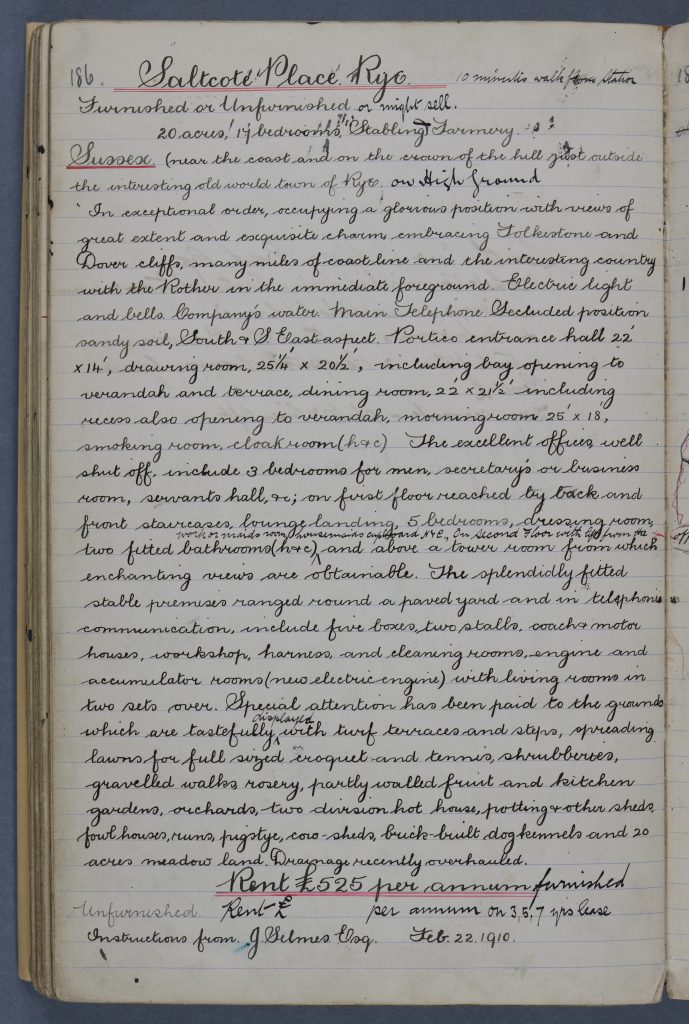 186. Saltcote Place. Rye. 10 minutes walk from Station
Furnished or Unfurnished or might sell.
20 acres, 17 bedrooms, Stabling & Farmery
Sussex. (near the coast and on the crown of the hill just outside
the interesting old world town of Rye. on High Ground
In exceptional order, occupying a glorious position with views of
great extent and exquisite charm embracing Folkestone and
Dover cliffs, many miles of coast line and the interesting country
with the Rother in the immediate foreground. Electric light
and bells. Company's water. Main Telephone. Secluded position
sandy soil, South & S. East aspect. Portico entrance hall 22'
x 14', drawing room, 25¼' x 20½', including bay opening to
verandah and terrace, dining room, 22' x 21½' including
recess also opening to verandah, morning room 25' x 18',
smoking room, cloak room (h & c) The excellent offices, well
shut off, include 3 bedrooms for men, secretary's or business
room, servants hall, &c; on first floor reached by back and
front staircases, lounge landing, 5 bedrooms, dressing room,
work or maids room, housemaids cupboard, &c., On Second Floor with lift from the
two fitted bathrooms (h & c), and above a tower room from which
enchanting views are obtainable. The splendidly fitted
stable premises ranged round a paved yard and in telephonic
communication, include five boxes, two stalls, coach & motor
houses, workshop, harness, and cleaning rooms, engine and
accumulator rooms (new electric engine) with living rooms in
two sets over. Special attention has been paid to the grounds
displayed
which are tastefully with turf terraces and steps, spreading
lawns for full sized croquet and tennis, shrubberies,
gravelled walks, rosery, partly walled fruit and kitchen
gardens, orchards, two division hot house, potting & other sheds,
fowl houses, runs, pigstye, cow-sheds, brick-built dog kennels and 20
acres meadow land. Drainage recently overhauled.
Rent £525 per annum furnished
Unfurnished. Rent £ per annum on 3, 5, 7 yrs lease
Instructions from J. Selmes Esq. Feb. 22. 1910.